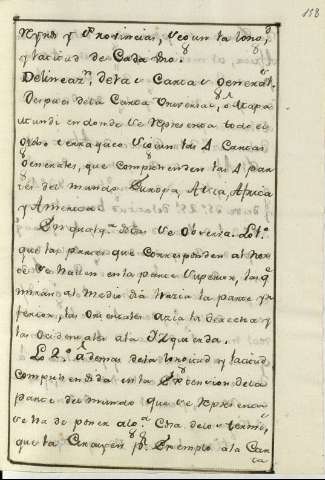 158
Reynos y Provincias, segun la longd.
y latitud de Cada Uno.
Delineazn. de las Cartas Generals.
Despues de la Carta Universal, o Mapa
mundi en donde se Representa todo el
Orbe terraqueo siguen las 4 Cartas
Generales, que comprehenden las 4 par
tes del mundo Europa, Asia, Africa
y America.
En qualqa. de las se Observa. Lo 1o.
que las partes que corresponden al Nor
te se hallen en la parte superior, las q
miran al Medio dia hazia la parte yn
ferior, las Orientales azia la derecha y
las Occidentales a la Izquierda.
Lo 2o. Ademas de la longitud y latitud
comprehendida en la Extencion de la
parte del mundo que se Representa
se ha de poner algo. de los termi
que la Por Exemplo a la Car
ta